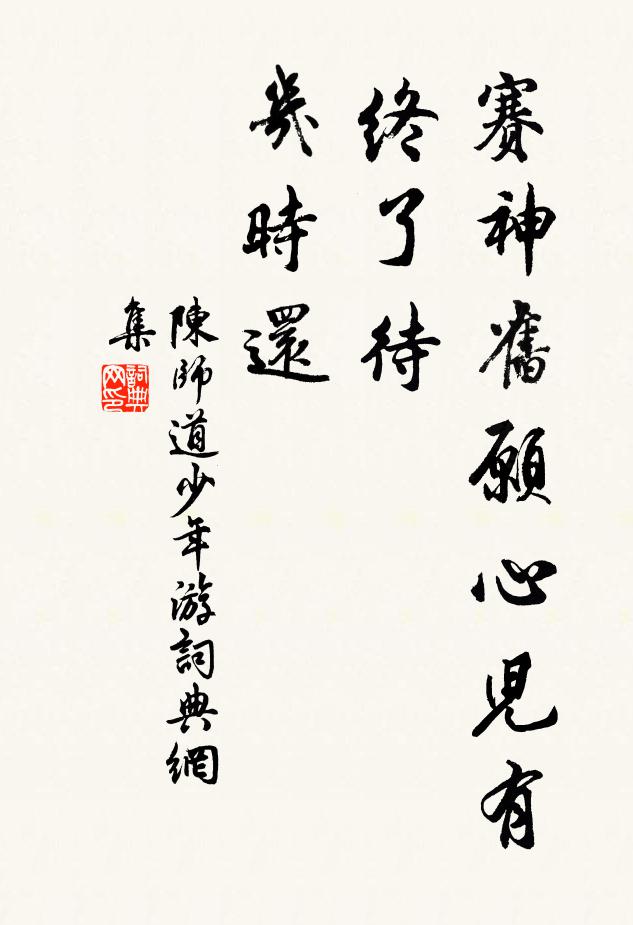 賽神舊願心兒有
終了待
幾時還
陳師道少年游詞典網
集
詞典
网印